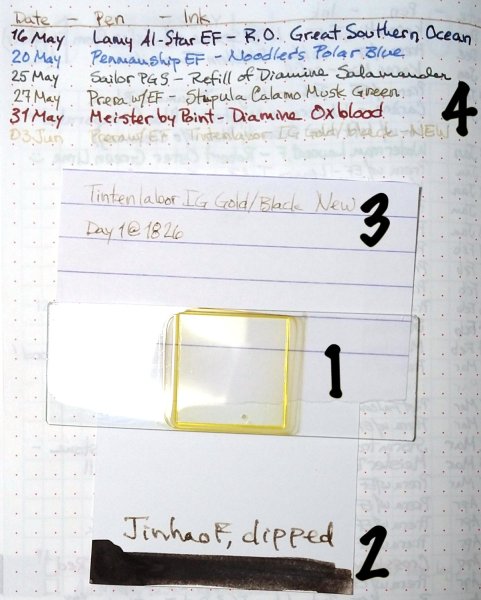 Date - Pen - Ink
16 May Lamy Al-Star EF - R.O. Great Southern Ocean
20 May Penmanship EF - Noodler's Polar Blue
25 May Sailor PGS - Refill of Diamine Salamander
27 May Prera w/EF - Stipula Calamo Musk Green
31 May Meister by Bint - Diamine Oxblood
03 Jun Prera w/EF - Tintenlabor IG Gold/Black - NEW
4
Tintenlabor IG Gold/Black New
Day 1 @ 1826
3
1
Jinhao F, dipped
2